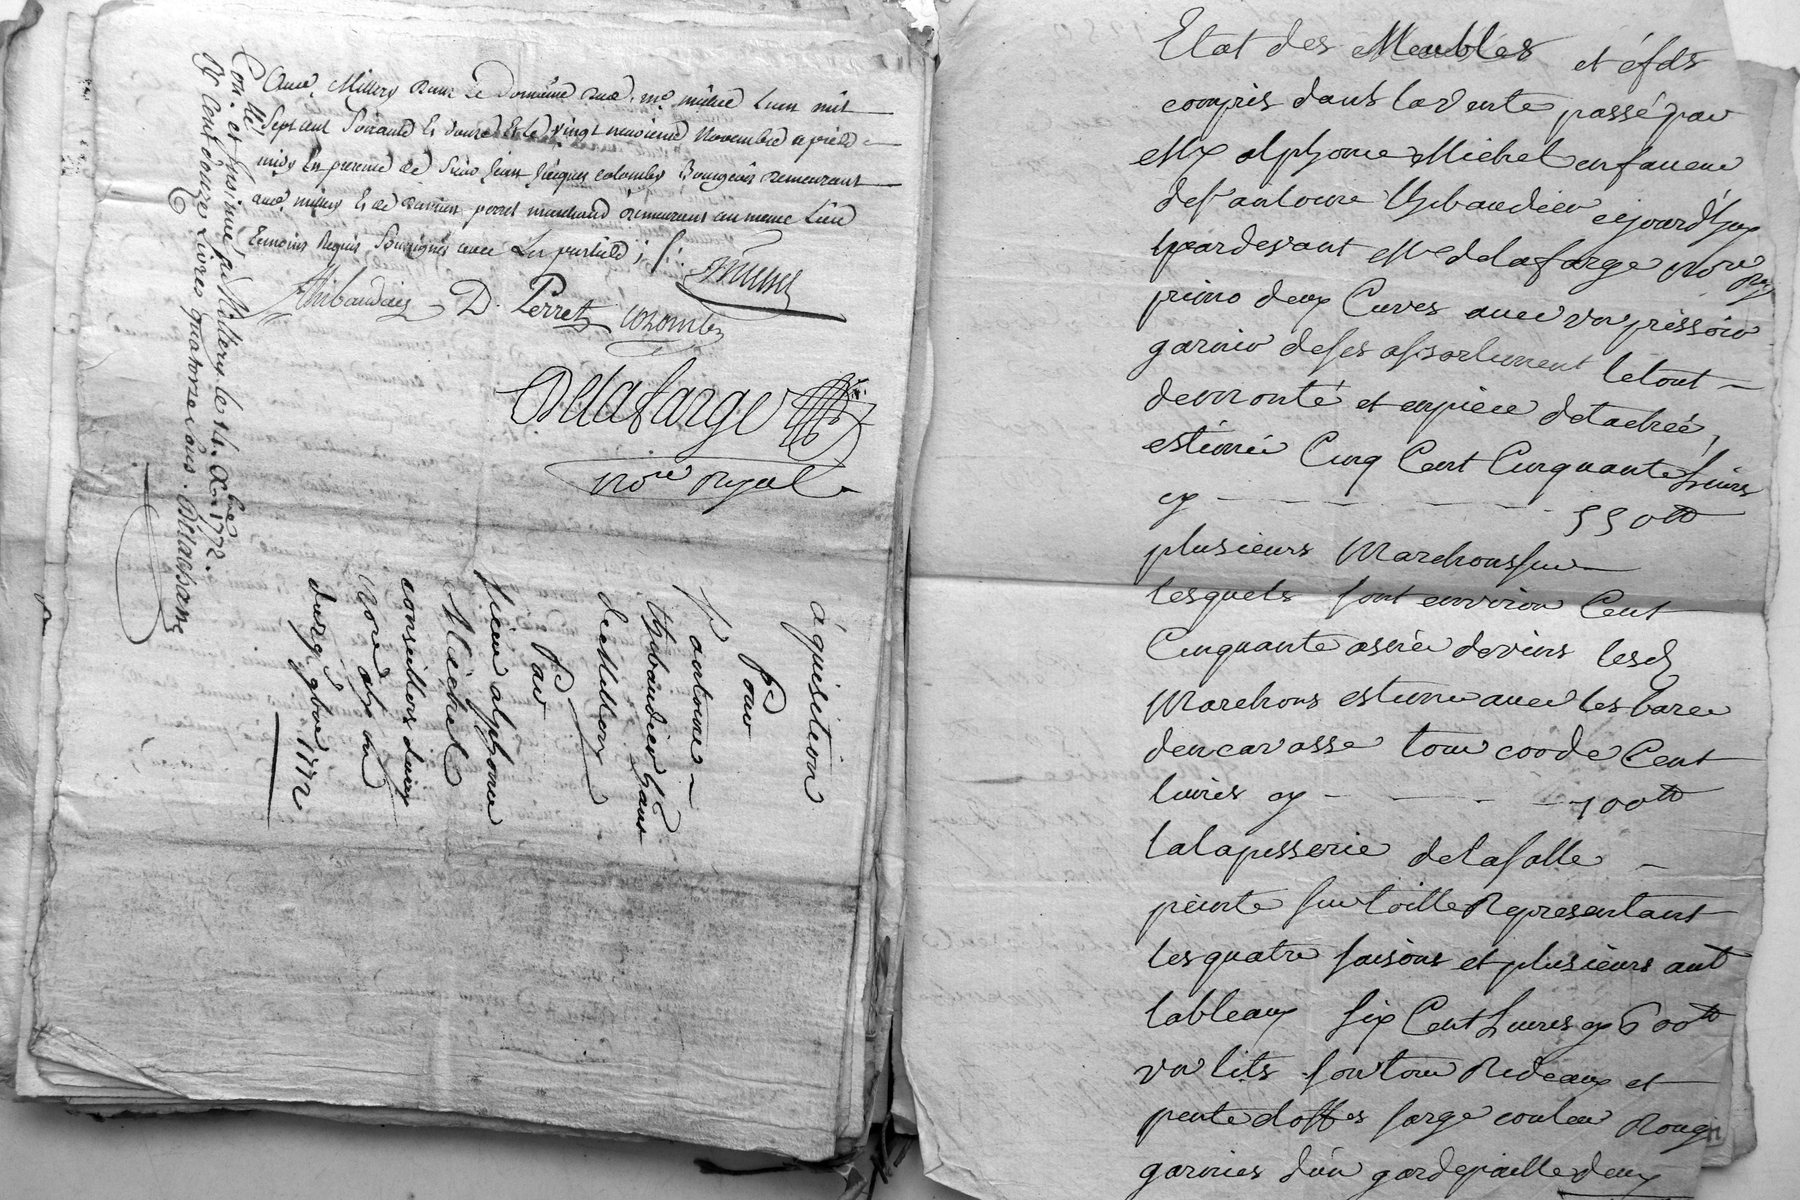 Aud. Millery dans le domaine dud. me. michel L'an mil
Sept cent Soixante Et douze Et le vingt neuvieme Novembre apres
midy En presence de Sieur Jean Jacques colomby Bourgeois demeurant
aud. millery Et de perret marchand demeurant au meme Lieu
Temoins Requis Soussignés avec Les parties
Michel
Thibaudier D. Perret colomby
Delafarge
nore royal
Con.lé et insinué à Millery le 14. Xbre 1772.
R cent onze Livres quatorze sous. Delafarge
aquisition
Pour
Sr antoine
thibaudier
de Millery
Par
sieur alphonce
Michel
conseillers du roy
Nore a
du 29 9bre 1772
Etat des Meubles et éfds
compris dans la Vente passé par
Mr alphonce Michel en faveur
de Sr antoine thibaudier cejourd'huy
pardevant Me delafarge nore roy
primo deux Cuves avec un pressoir
garnie de ses assortiment le tout
demonté et en piece detachée,
estimé Cinq Cent Cinquante Livres
cy 550tt
plusieurs Marchons sur
lesquels sont environ Cent
Cinquante asnée de vins lesd
Marchons estimé avec les bare
den cavasse tour coode Cent
livres cy 100tt
la tapisserie de la salle
peinte sur toille Representant
les quatre saisons et plusieurs aut
tableaux six Cent Livres cy 600tt
un lits son tour Rideaux et
pente d'offes sarge couleur Rouge
garnies d'un gardepaille deux